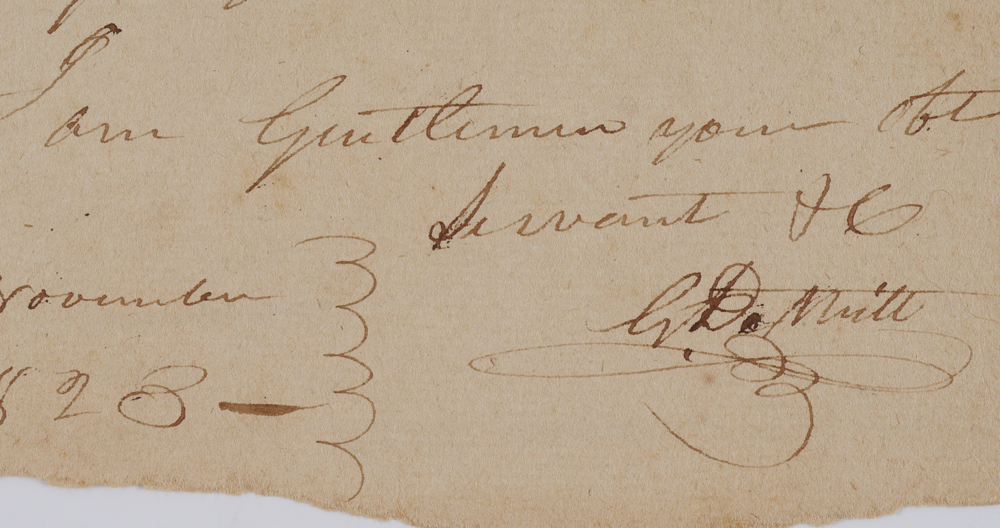 I
am Gentlemen your obt
Servant & C
November
G. De Witt
1823 —